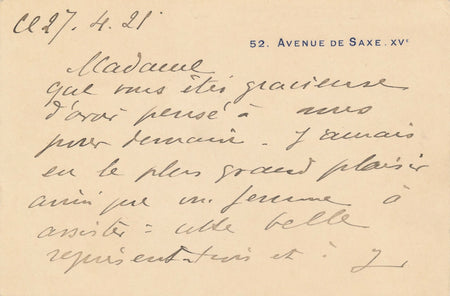 Ce 27.4.21
52. AVENUE DE SAXE. XVᵉ
Madame
que vous êtes gracieuse
d'avoir pensé à nous
pour demain. J'aurais
eu le plus grand plaisir
ainsi que ma femme à
assister à cette belle
représentation et à y